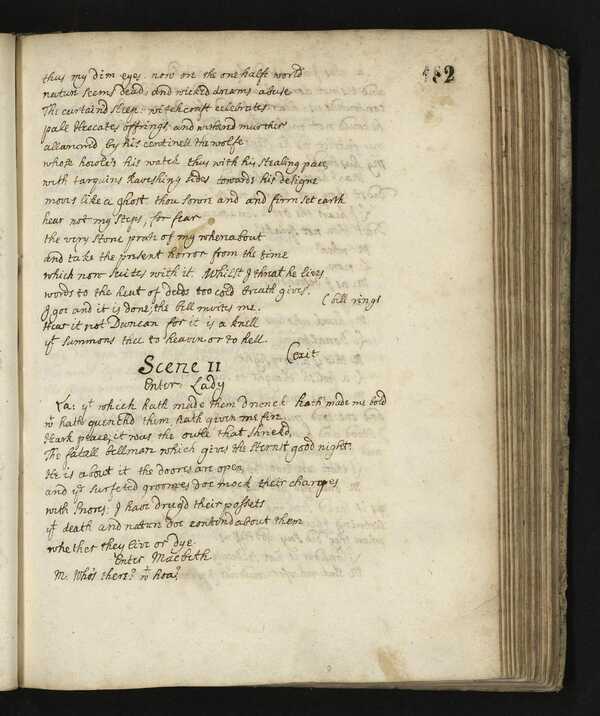 182
thus my dim eyes. now ore the one halfe world
nature seems dead, and wicked dreams abuse
The curtaind sleep: witchcraft celebrates
pale Heccates offrings and wiherd murther
allarumd by his centinell the wolfe
whose howle's his watch thus with his stealing pace
with tarquins Raveshing sides towards his designe
moves like a ghost thou sown and and firm set earth
hear not my steps, for fear
the very stone prate of my whereabout
and take the present horror from the time
which now suites with it. Whilst I threat he lives
words to the heat of deeds too cold breath gives. (bell rings
I goe and it is done; the bell invites me.
Hear it not Duncan for it is a knell
yt summons thee to heaven or to hell. (exit
Scene II
Enter Lady
La: yt which hath made them drunck hath made me bold
wt hath quenchd them, hath given me fire.
Hark peace; it was the owle that shriekd,
The fatall bellman which gives the sternst good night
He is about it the doores are open
and ye surfeted groomes doe mock their charges
with snores: I have drugd their possets
yt death and nature doe contend about them
whether they live or dye.
Enter Macbeth
M. Who's there? wt hoa?